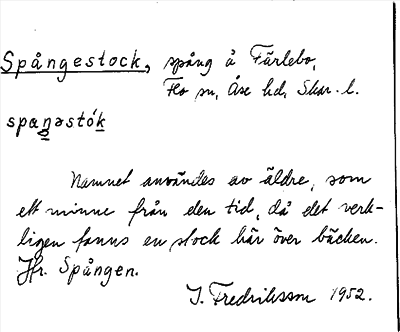 Spångestock, spång å Färlebo,
Flo sn, Åse hd, Skar. l.
spaŋəstó̱k
Namnet användes av äldre, som
ett minne från den tid, då det verk-
ligen fanns en stock här över bäcken.
Jfr. Spången.
I. Fredriksson 1952.